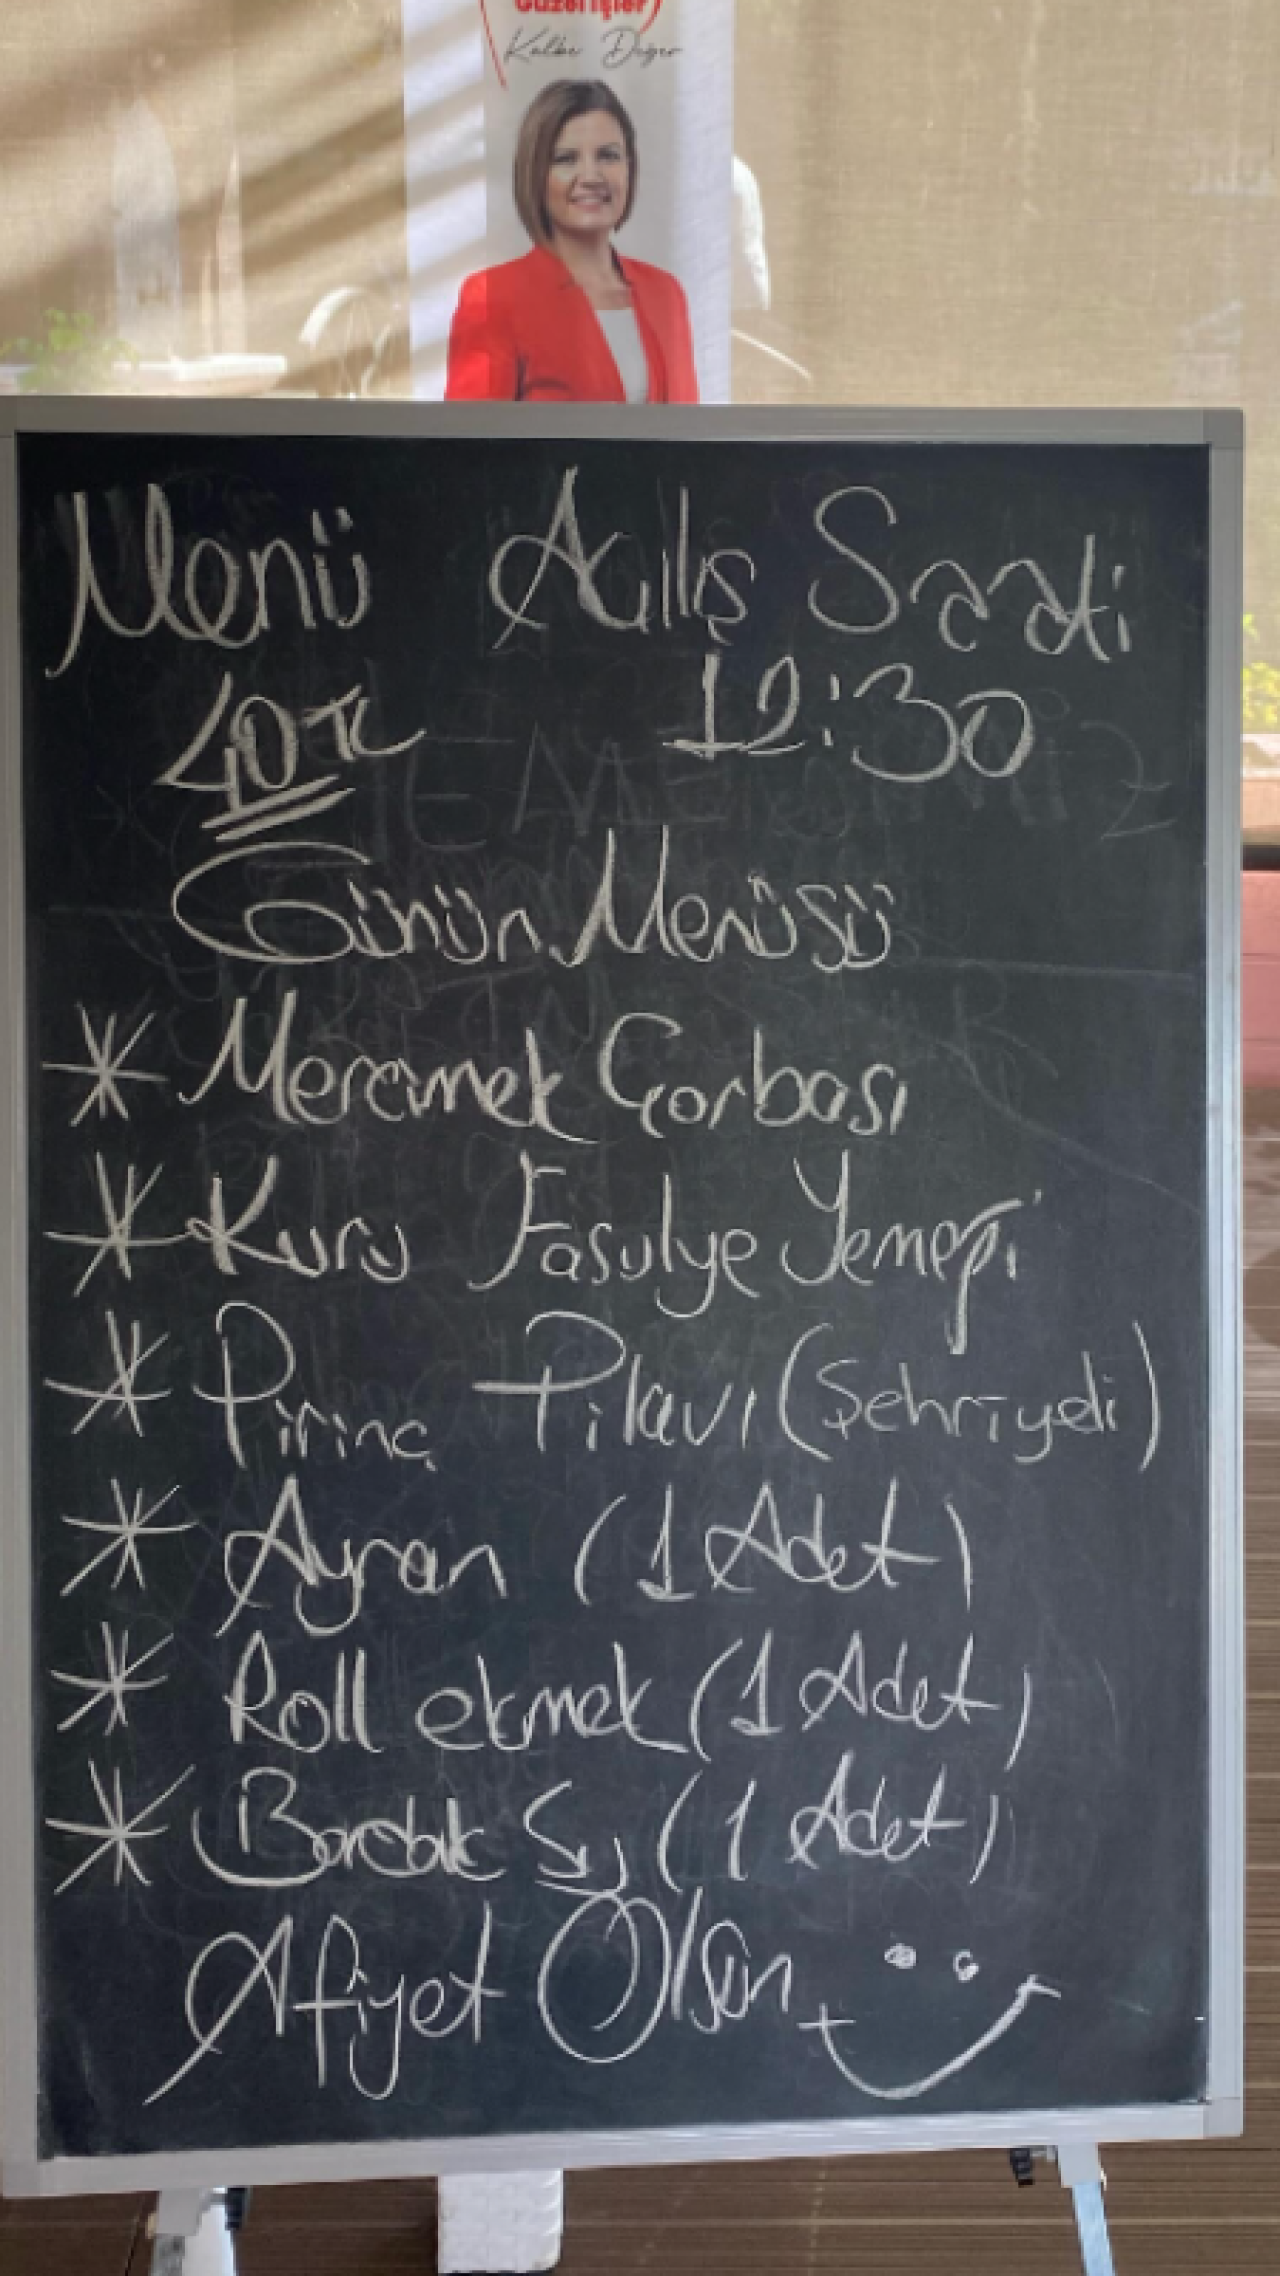 Güzel İşler
Kalbe Değer
Menü Açılış Saati
40 TL 12:30
Günün Menüsü
* Mercimek Çorbası
* Kuru Fasulye Yemeği
* Pirinç Pilavı (Şehriyeli)
* Ayran (1 Adet)
* Roll ekmek (1 Adet)
* Bardak Su (1 Adet)
Afiyet Olsun